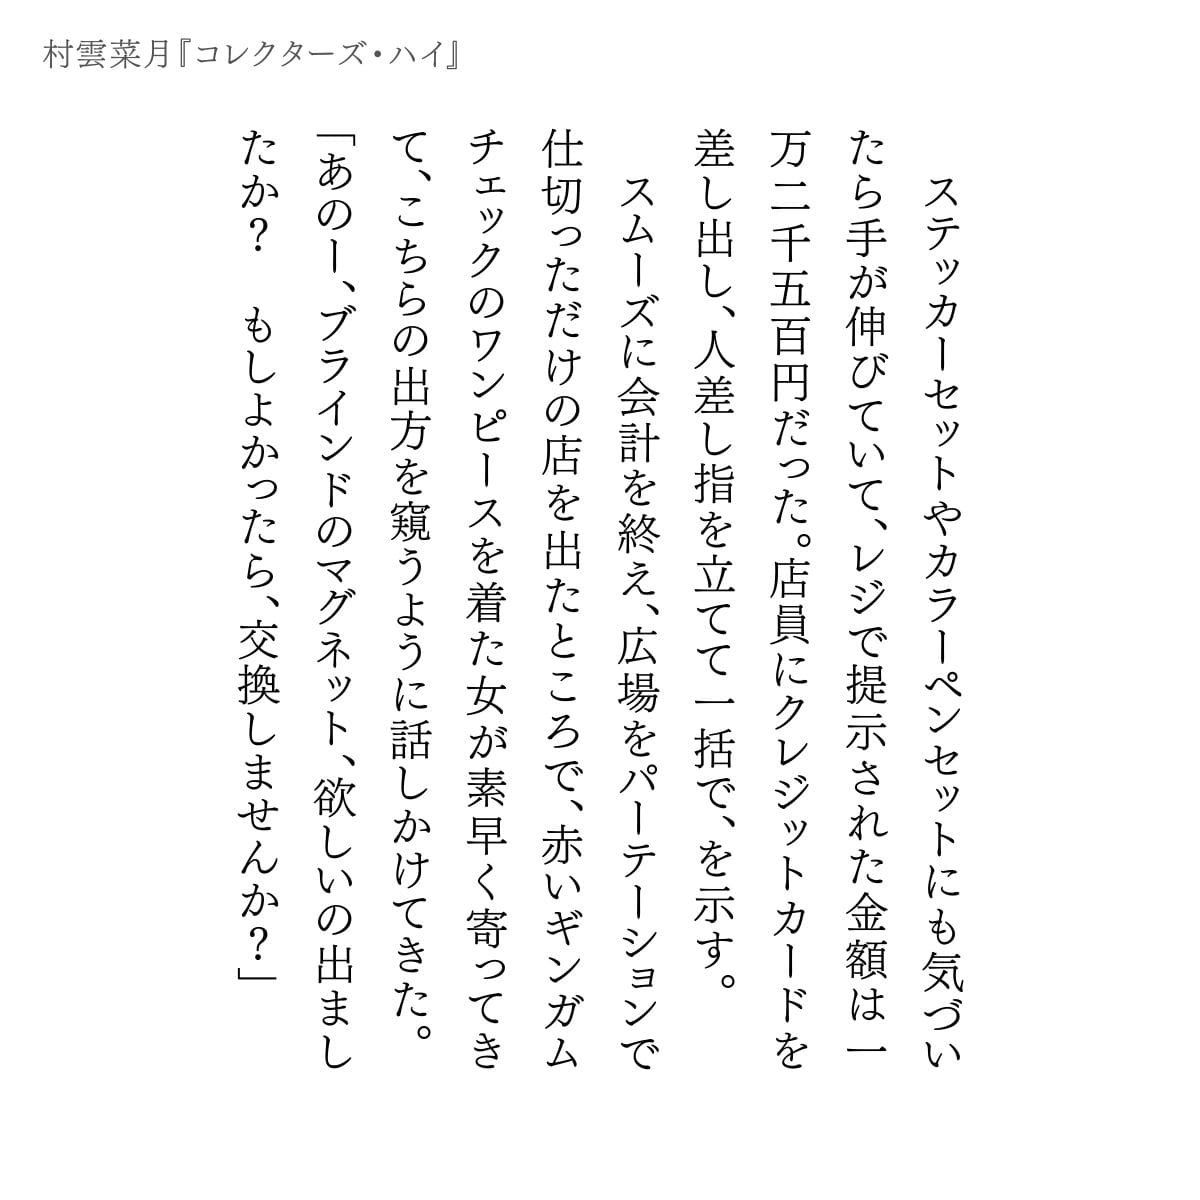 村雲菜月『コレクターズ・ハイ』
　ステッカーセットやカラーペンセットにも気づい
たら手が伸びていて、レジで提示された金額は一
万二千五百円だった。店員にクレジットカードを
差し出し、人差し指を立てて一括で、を示す。
　スムーズに会計を終え、広場をパーテーションで
仕切っただけの店を出たところで、赤いギンガム
チェックのワンピースを着た女が素早く寄ってき
て、こちらの出方を窺うように話しかけてきた。
「あのー、ブラインドのマグネット、欲しいの出まし
たか？　もしよかったら、交換しませんか？」